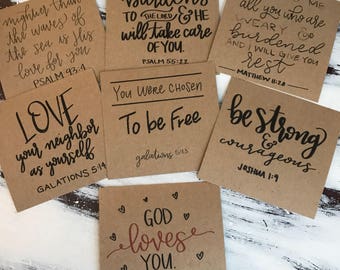 mightier than
the waves of
the sea is His
love for you
PSALM 93:4
burdens
TO THE LORD & HE
will take care
OF YOU.
PSALM 55:22
ME
all you who are
WEARY &
burdened
AND I WILL GIVE YOU
rest
MATTHEW 11:28
LOVE
your neighbor
as yourself
GALATIONS 5:14
You Were Chosen
To be Free
galations 5:13
be strong
&
courageous
JOSHUA 1:9
GOD
loves
YOU.